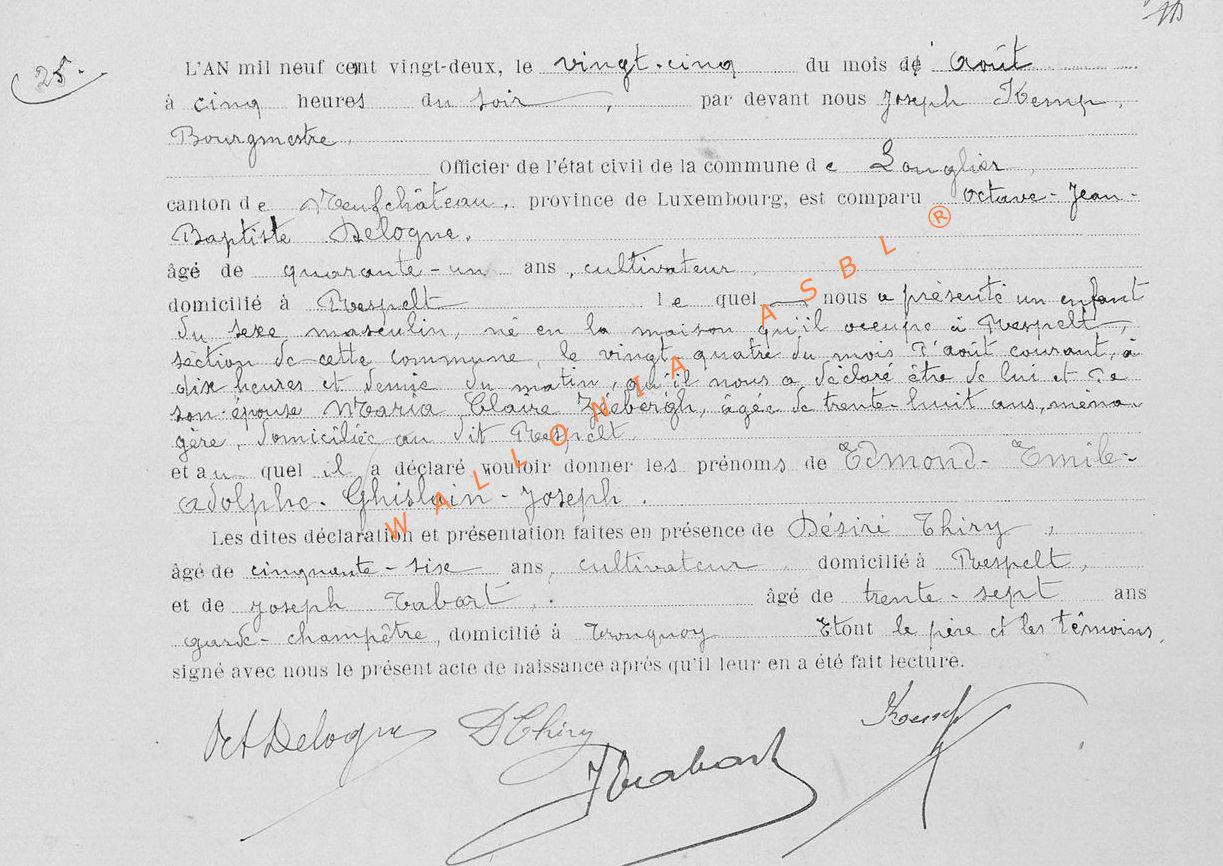 25.
L'AN mil neuf cent vingt-deux, le vingt-cinq du mois d' Août
à cinq heures du soir, par devant nous Joseph Kemp,
Bourgmestre,
Officier de l'état civil de la commune de Longlier,
canton de Neufchâteau, province de Luxembourg, est comparu Octave-Jean-
Baptiste Delogne,
âgé de quarante-un ans, cultivateur,
domicilié à Respelt lequel nous a présenté un enfant
du sexe masculin, né en la maison qu'il occupe à Respelt,
section de cette commune, le vingt-quatre du mois d'août courant, à
dix heures et demie du matin, qu'il nous a déclaré être de lui et de
son épouse Maria Claire, âgée de trente-huit ans, ména-
gère, domiciliée au dit Respelt.
et auquel il a déclaré vouloir donner les prénoms de Edmond-Emile-
Adolphe-Ghislain-Joseph.
Les dites déclaration et présentation faites en présence de Désiré Thiry,
âgé de cinquante-six ans, cultivateur, domicilié à Respelt,
et de Joseph Tabart, âgé de trente-sept ans
garde-champêtre, domicilié à Tronquoy Etont le père et les témoins,
signé avec nous le présent acte de naissance après qu'il leur en a été fait lecture.
Oct Delogne D Thiry Kemp
WALLONIA ASBL ®